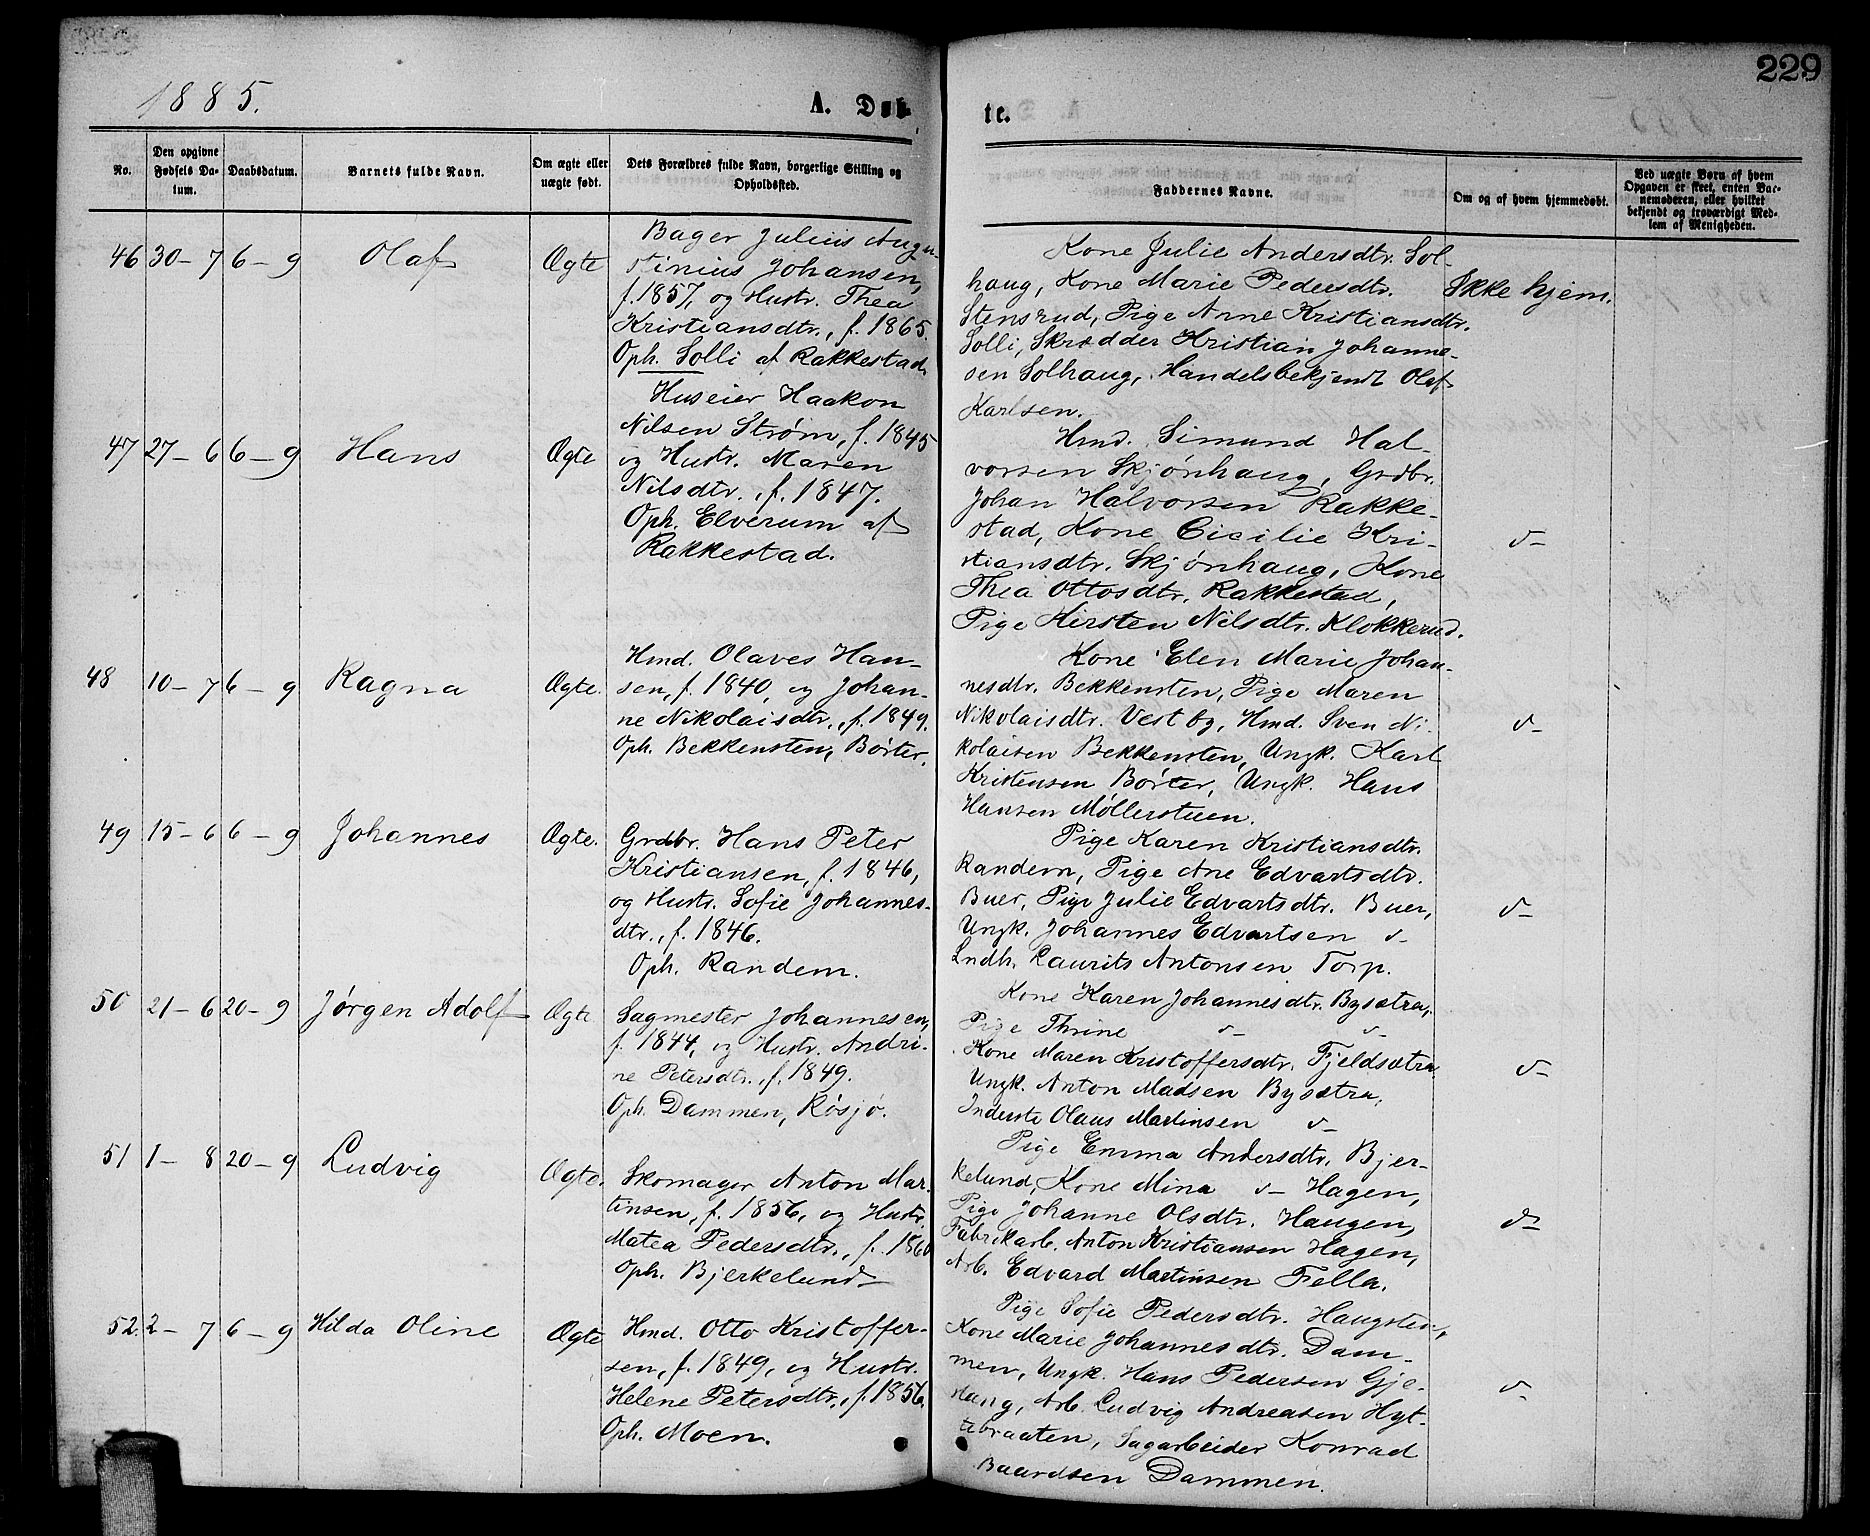 229
1885.
A. Døbte.
No.
Den opgivne Fødsels Datum.
Daabsdatum.
Barnets fulde Navn.
Om ægte eller uægte født.
Dets Forældres fulde Navn, borgerlige Stilling og Opholdsted.
Faddernes Navne.
Om og af hvem hjemmedøbt.
Ved uægte Børn af hvem Opgaven er skeet, enten Barnemoderen, eller hvilket bekjendt og troværdigt Medlem af Menigheden.
46 30-7 6-9 Olaf Ægte
Bager Julius Augu-
stinius Johansen,
f. 1857, og Hustr. Thea
Kristiansdtr., f. 1865.
Oph. Solli af Rakkestad
Kone Julie Andersdtr. Sol-
haug, Kone Marie Pedersdtr.
Stensrud, Pige Anne Kristiansdtr.
Solli, Skrædder Kristian Johanne-
sen Solhaug, Handelsbekjendt Olaf
Karlsen.
Ikke hjem.
47 27-6 6-9 Hans Ægte
Huseier Haakon
Nilsen Strøm, f. 1845
og Hustr. Maren
Nilsdtr., f. 1847.
Oph. Elverum af
Rakkestad.
Hmd. Simund Hal-
vorsen Skjønhaug, Grdbr.
Johan Halvorsen Rakke-
stad, Kone Cicilie Kri-
stiansdtr. Skjønhaug, Kone
Thea Ottosdtr. Rakkestad,
Pige Kirsten Nilsdtr. Klokkerud.
d-
48 10-7 6-9 Ragna Ægte.
Hmd. Olaves Han-
sen, f. 1840, og Johan-
ne Nikolaisdtr., f. 1849.
Oph. Bekkensten, Børter.
Kone Elen Marie Johan-
nesdtr. Bekkensten, Pige Maren
Nikolaisdtr. Vestby, Hmd. Sven Ni-
kolaisen Bekkensten, Ungk. Karl
Kristensen Børter, Ungk. Hans
Hansen Møllerstuen.
d-
49 15-6 6-9 Johannes Ægte.
Grdbr. Hans Peter
Kristiansen, f. 1846,
og Hustr. Sofie Johannes-
dtr., f. 1846.
Oph. Randem.
Pige Karen Kristiansdtr.
Randem, Pige Ane Edvartsdtr.
Buer, Pige Julie Edvartsdtr. Buer,
Ungk. Johannes Edvartsen d-
Lndh. Laurits Antonsen Torp.
d-
50 21-6 20-9 Jørgen Adolf Ægte
Sagmester Johannesen,
f. 1844, og Hustr. Andri-
ne Petersdtr., f. 1849.
Oph. Dammen, Røsjø.
Kone Karen Johannesdtr. Bysætra,
Pige Thrine d- d-
Kone Maren Kristoffersdtr. Fjeldsætra.
Ungk. Anton Madsen Bysætra,
Inderste Olaus Martinsen d-
d-
51 1-8 20-9 Ludvig Ægte.
Skomager Anton Mar-
tinsen, f. 1856, og Hustr.
Matea Pedersdtr., f. 1860
Oph. Bjerkelund
Pige Emma Andersdtr. Bjer-
kelund, Kone Mina d- Hagen,
Pige Johanne Olsdtr. Haugen,
Fabrikarb. Anton Kristiansen Hagen,
Arb. Edvard Martinsen Fella.
d-
52. 2-7 6-9 Hilda Oline Ægte
Hmd. Otto Kristoffer-
sen, f. 1849, og Hustr.
Helene Petersdtr., f. 1856.
Oph. Moen.
Pige Sofie Pedersdtr. Haugsten,
Kone Marie Johannesdtr. Dam-
men, Ungk. Hans Pedersen Gje-
stang, Arb. Ludvig Andreasen Hyt-
tebraaten, Sagarbeider Konrad
Baardsen Dammen.
d-